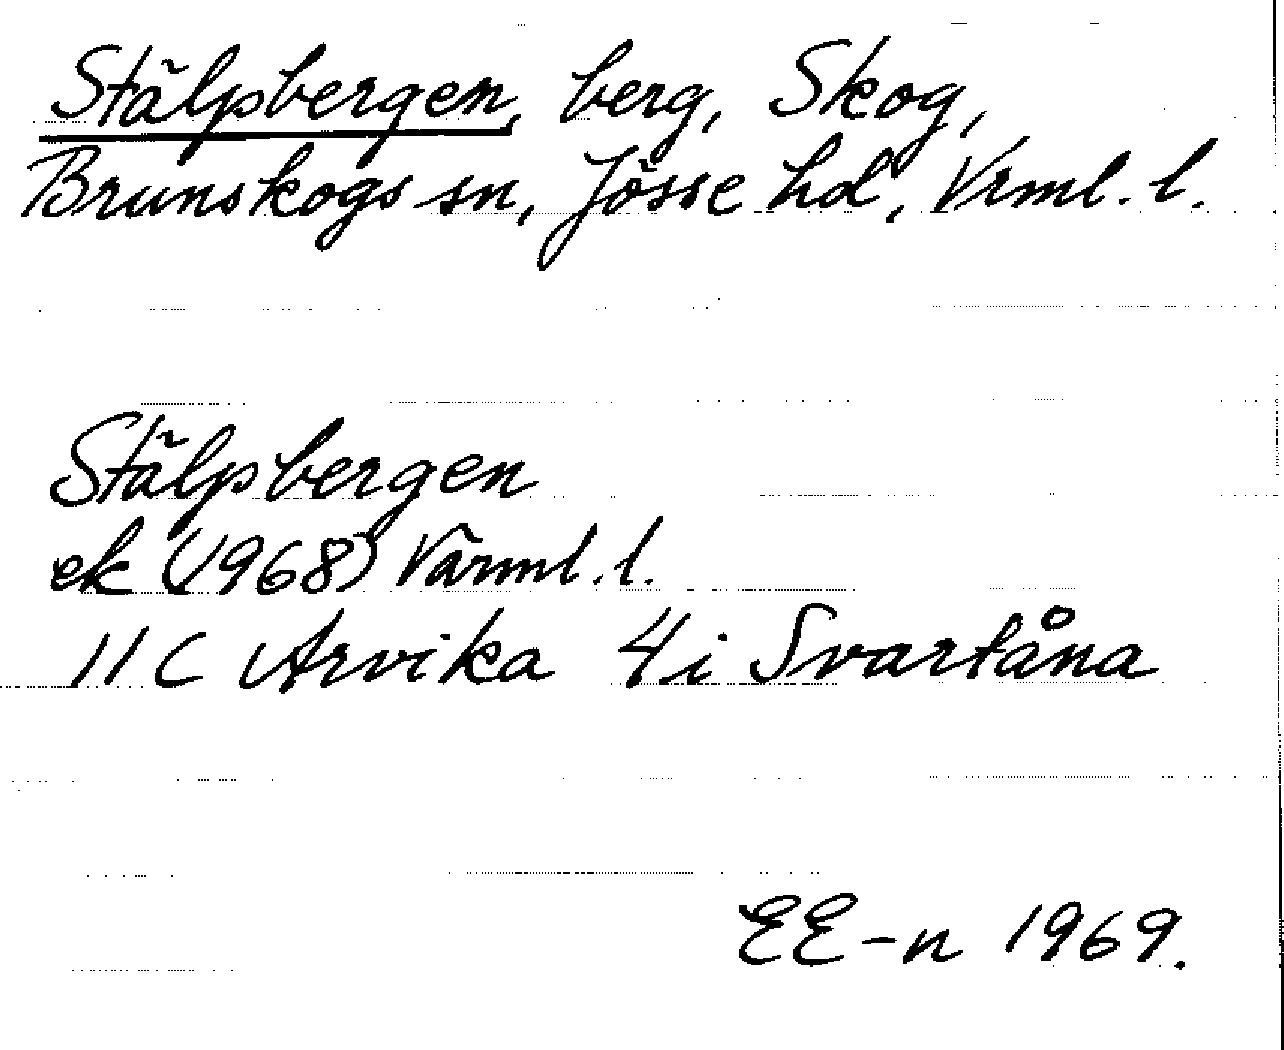 Stälpbergen, berg, Skog,
Brunskogs sn, Jösse hd, Vrml. l.
Stälpbergen
ek (1968) Värml. l.
11 C Arvika 4i Svartåna
EE-n 1969.